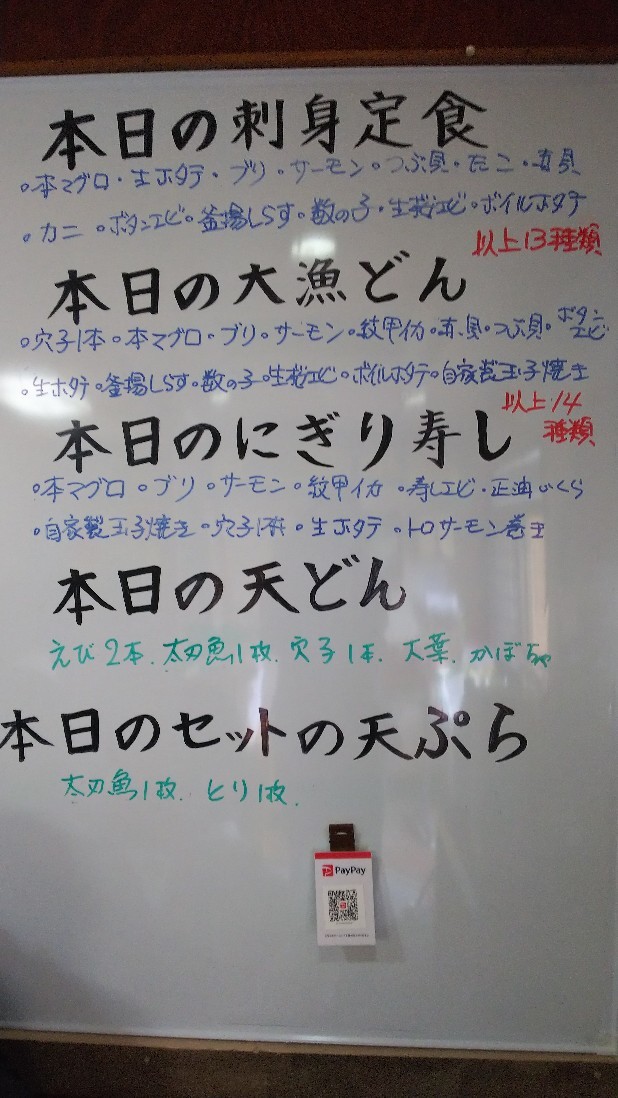 本日の刺身定食
○本マグロ・生ホタテ・ブリ・サーモン○つぶ貝・たこ・赤貝
○カニ○ボタンエビ○釜揚しらす○数の子・生桜エビ○ボイルホタテ
以上13種類
本日の大漁どん
○穴子1本○本マグロ○ブリ○サーモン○紋甲イカ○赤貝○つぶ貝○ボタンエビ
○生ホタテ○釜揚しらす○数の子○生桜エビ○ボイルホタテ○自家製玉子焼き
以上14
種類
本日のにぎり寿し
○本マグロ○ブリ○サーモン○紋甲イカ○寿しエビ・正油いくら
○自家製玉子焼き○穴子1本・生ホタテ○トロサーモン巻き
本日の天どん
えび2本.太刀魚1枚.穴子1本.大葉.かぼちゃ
本日のセットの天ぷら
太刀魚1枚.とり1枚.
PayPay